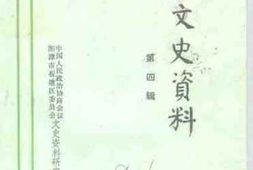 文史資料
第四辑
中国人民政治协商会议
湘潭市板塘区委员会
文史资料研